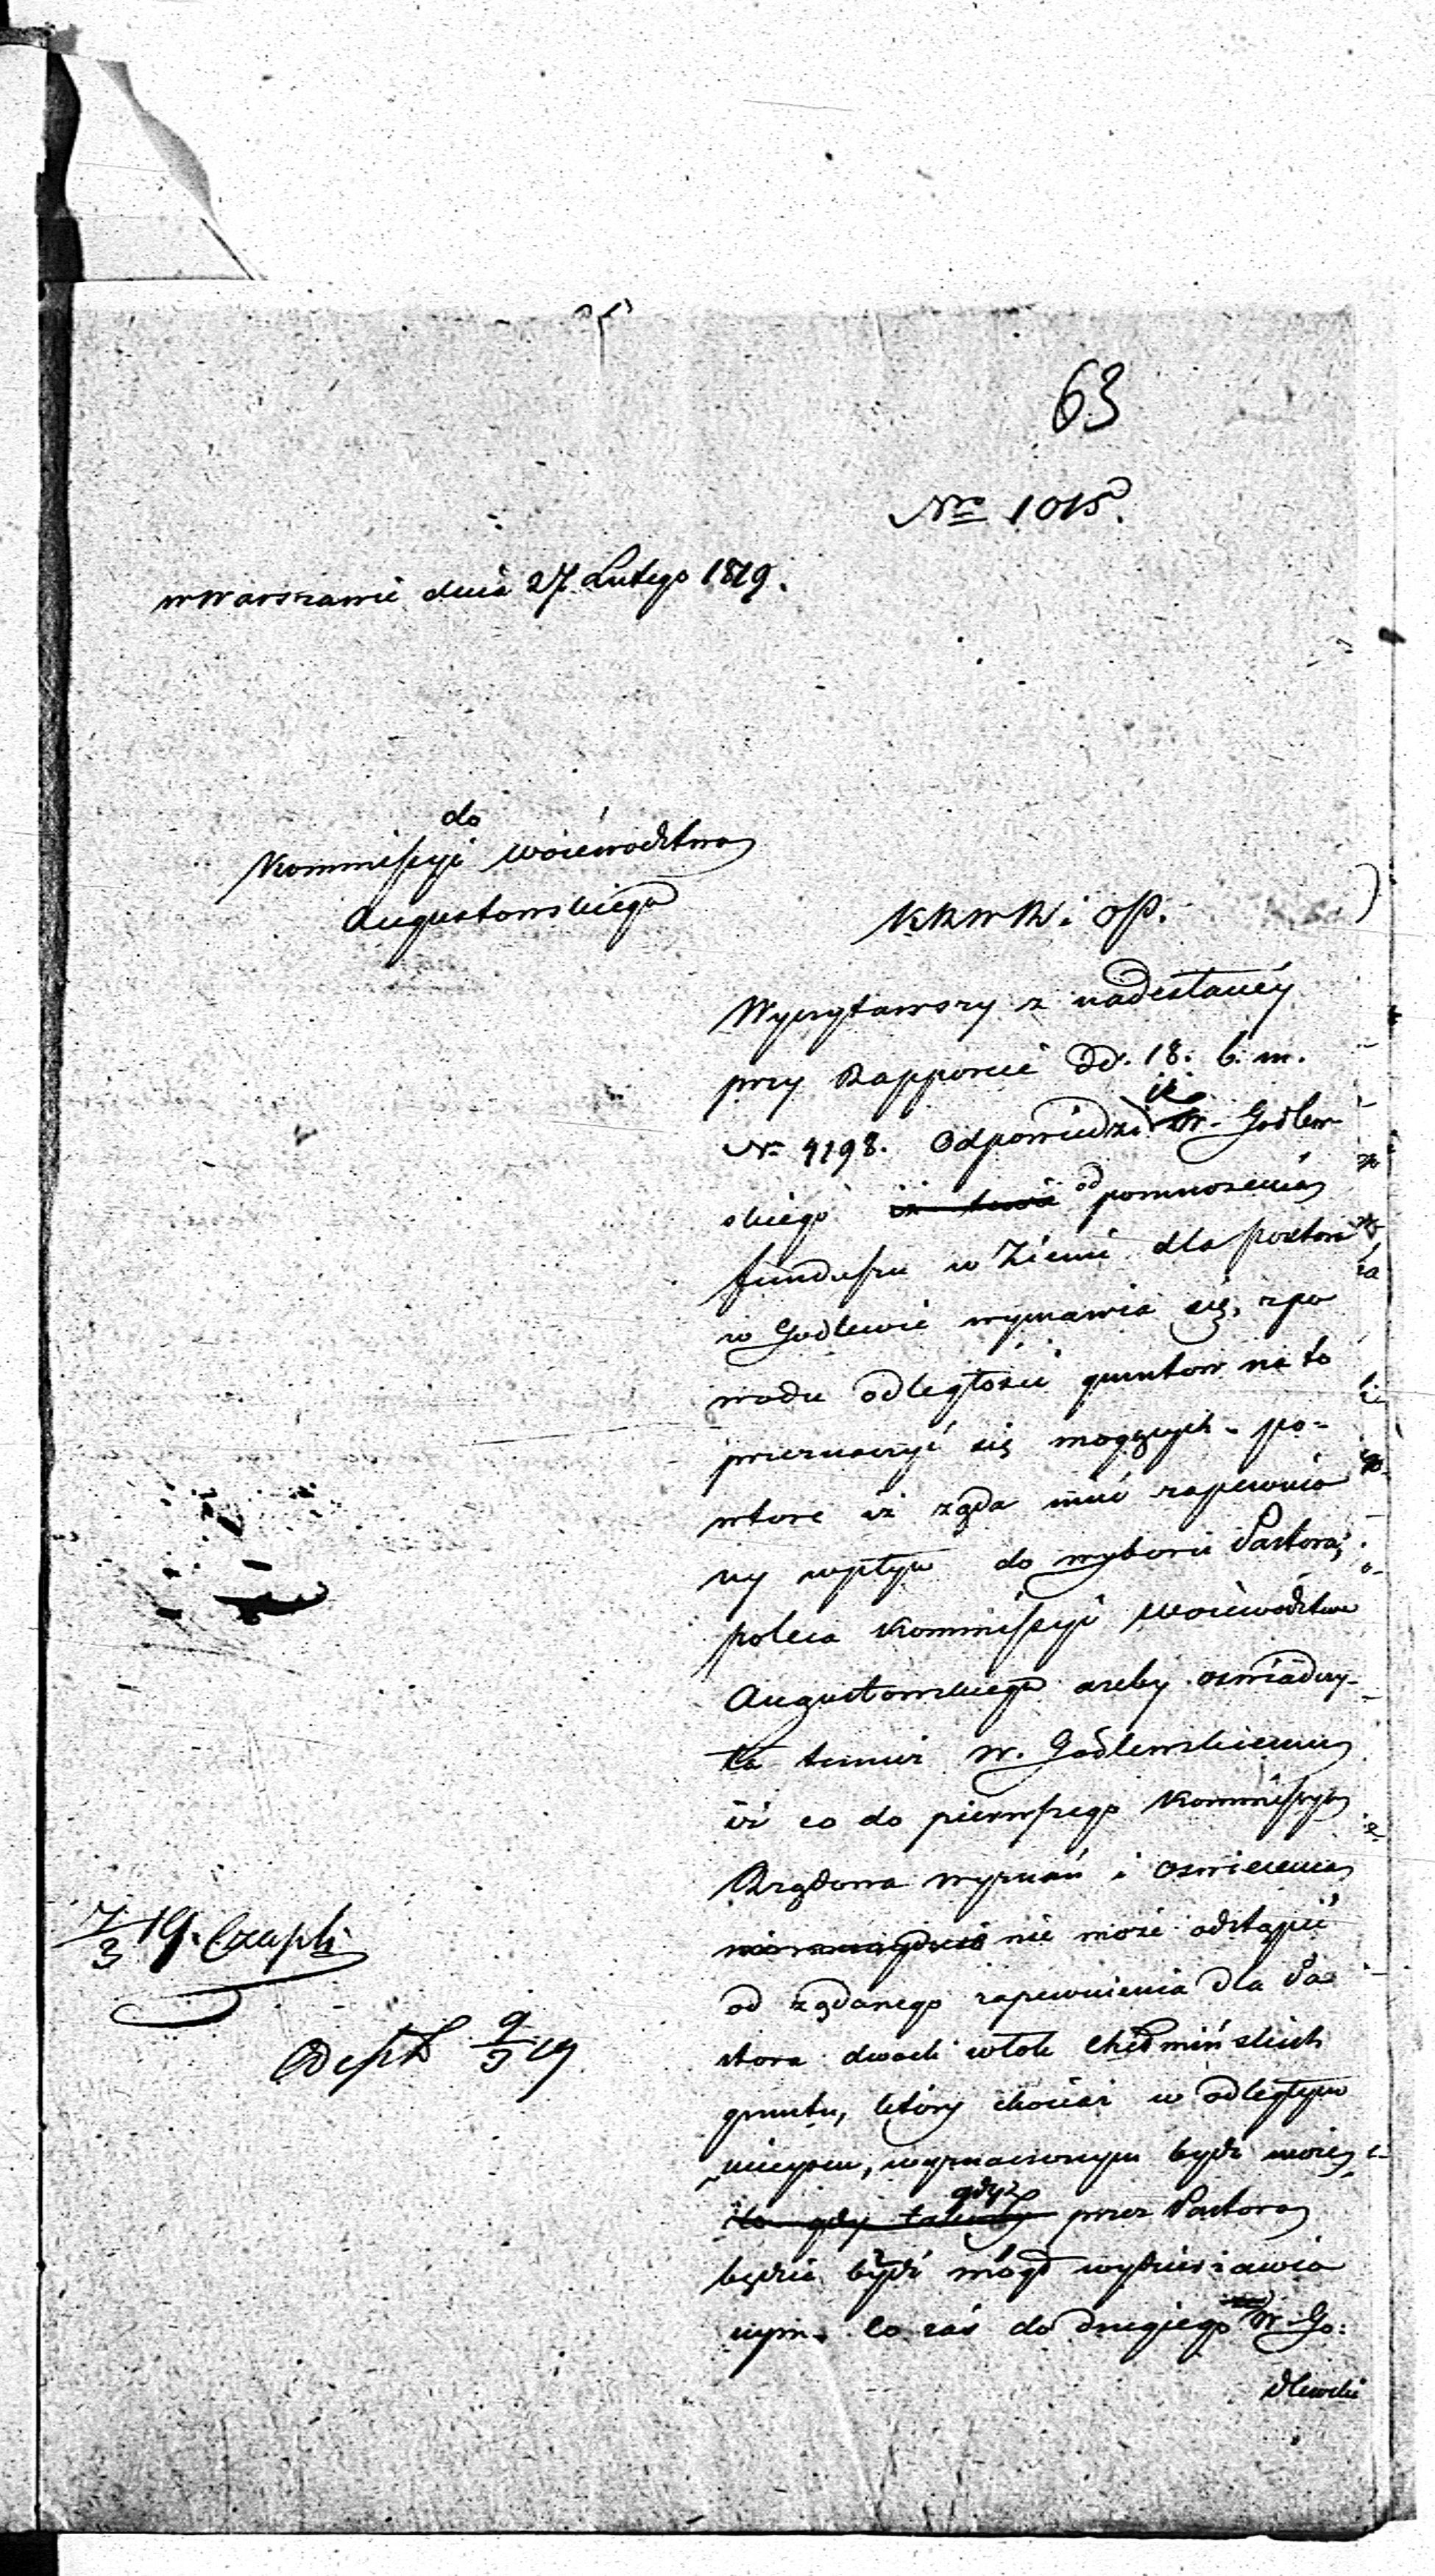 63
Nro 1015.
w Warszawie dnia 27 Lutego 1819.
do
Kommissyi Woiewodztwa
Augustowskiego
KRWR i OP.
Wyczytawszy z nadesłanéy
przy Rapporcie dd. 18. b. m.
Nr 4198. Odpowiedzi iż W. Godlew-
skiego od pomnożenia
funduszu w Ziemi dla pastora
w Godlewie wymawia się, z po
wodu odległości gruntow na to
przeznaczyć się mogących, po-
wtore iż żąda mieć zapewnio
ny wpływ do wyboru Pastora;
poleca Kommissyi Woiewodztwa
Augustowskiego ażeby oswiadczy-
ła temuż W. Godlewskiemu
iż co do pierwszego Kommissya
Rządowa wyznań i oswiecenia
nie może odstąpić
od żądanego zapewnienia dla Pa-
stora dwoch włok Chełmińskich
gruntu, który chociaż w odległym
mieyscu, wyznaczonym bydź może,
gdyż przez Pastora
będzie bydź mógł wydzierżawio
nym. Co zaś do drugiego W. Go-
dlewski
7/3 19. Czapli
Odesł 9/3 19